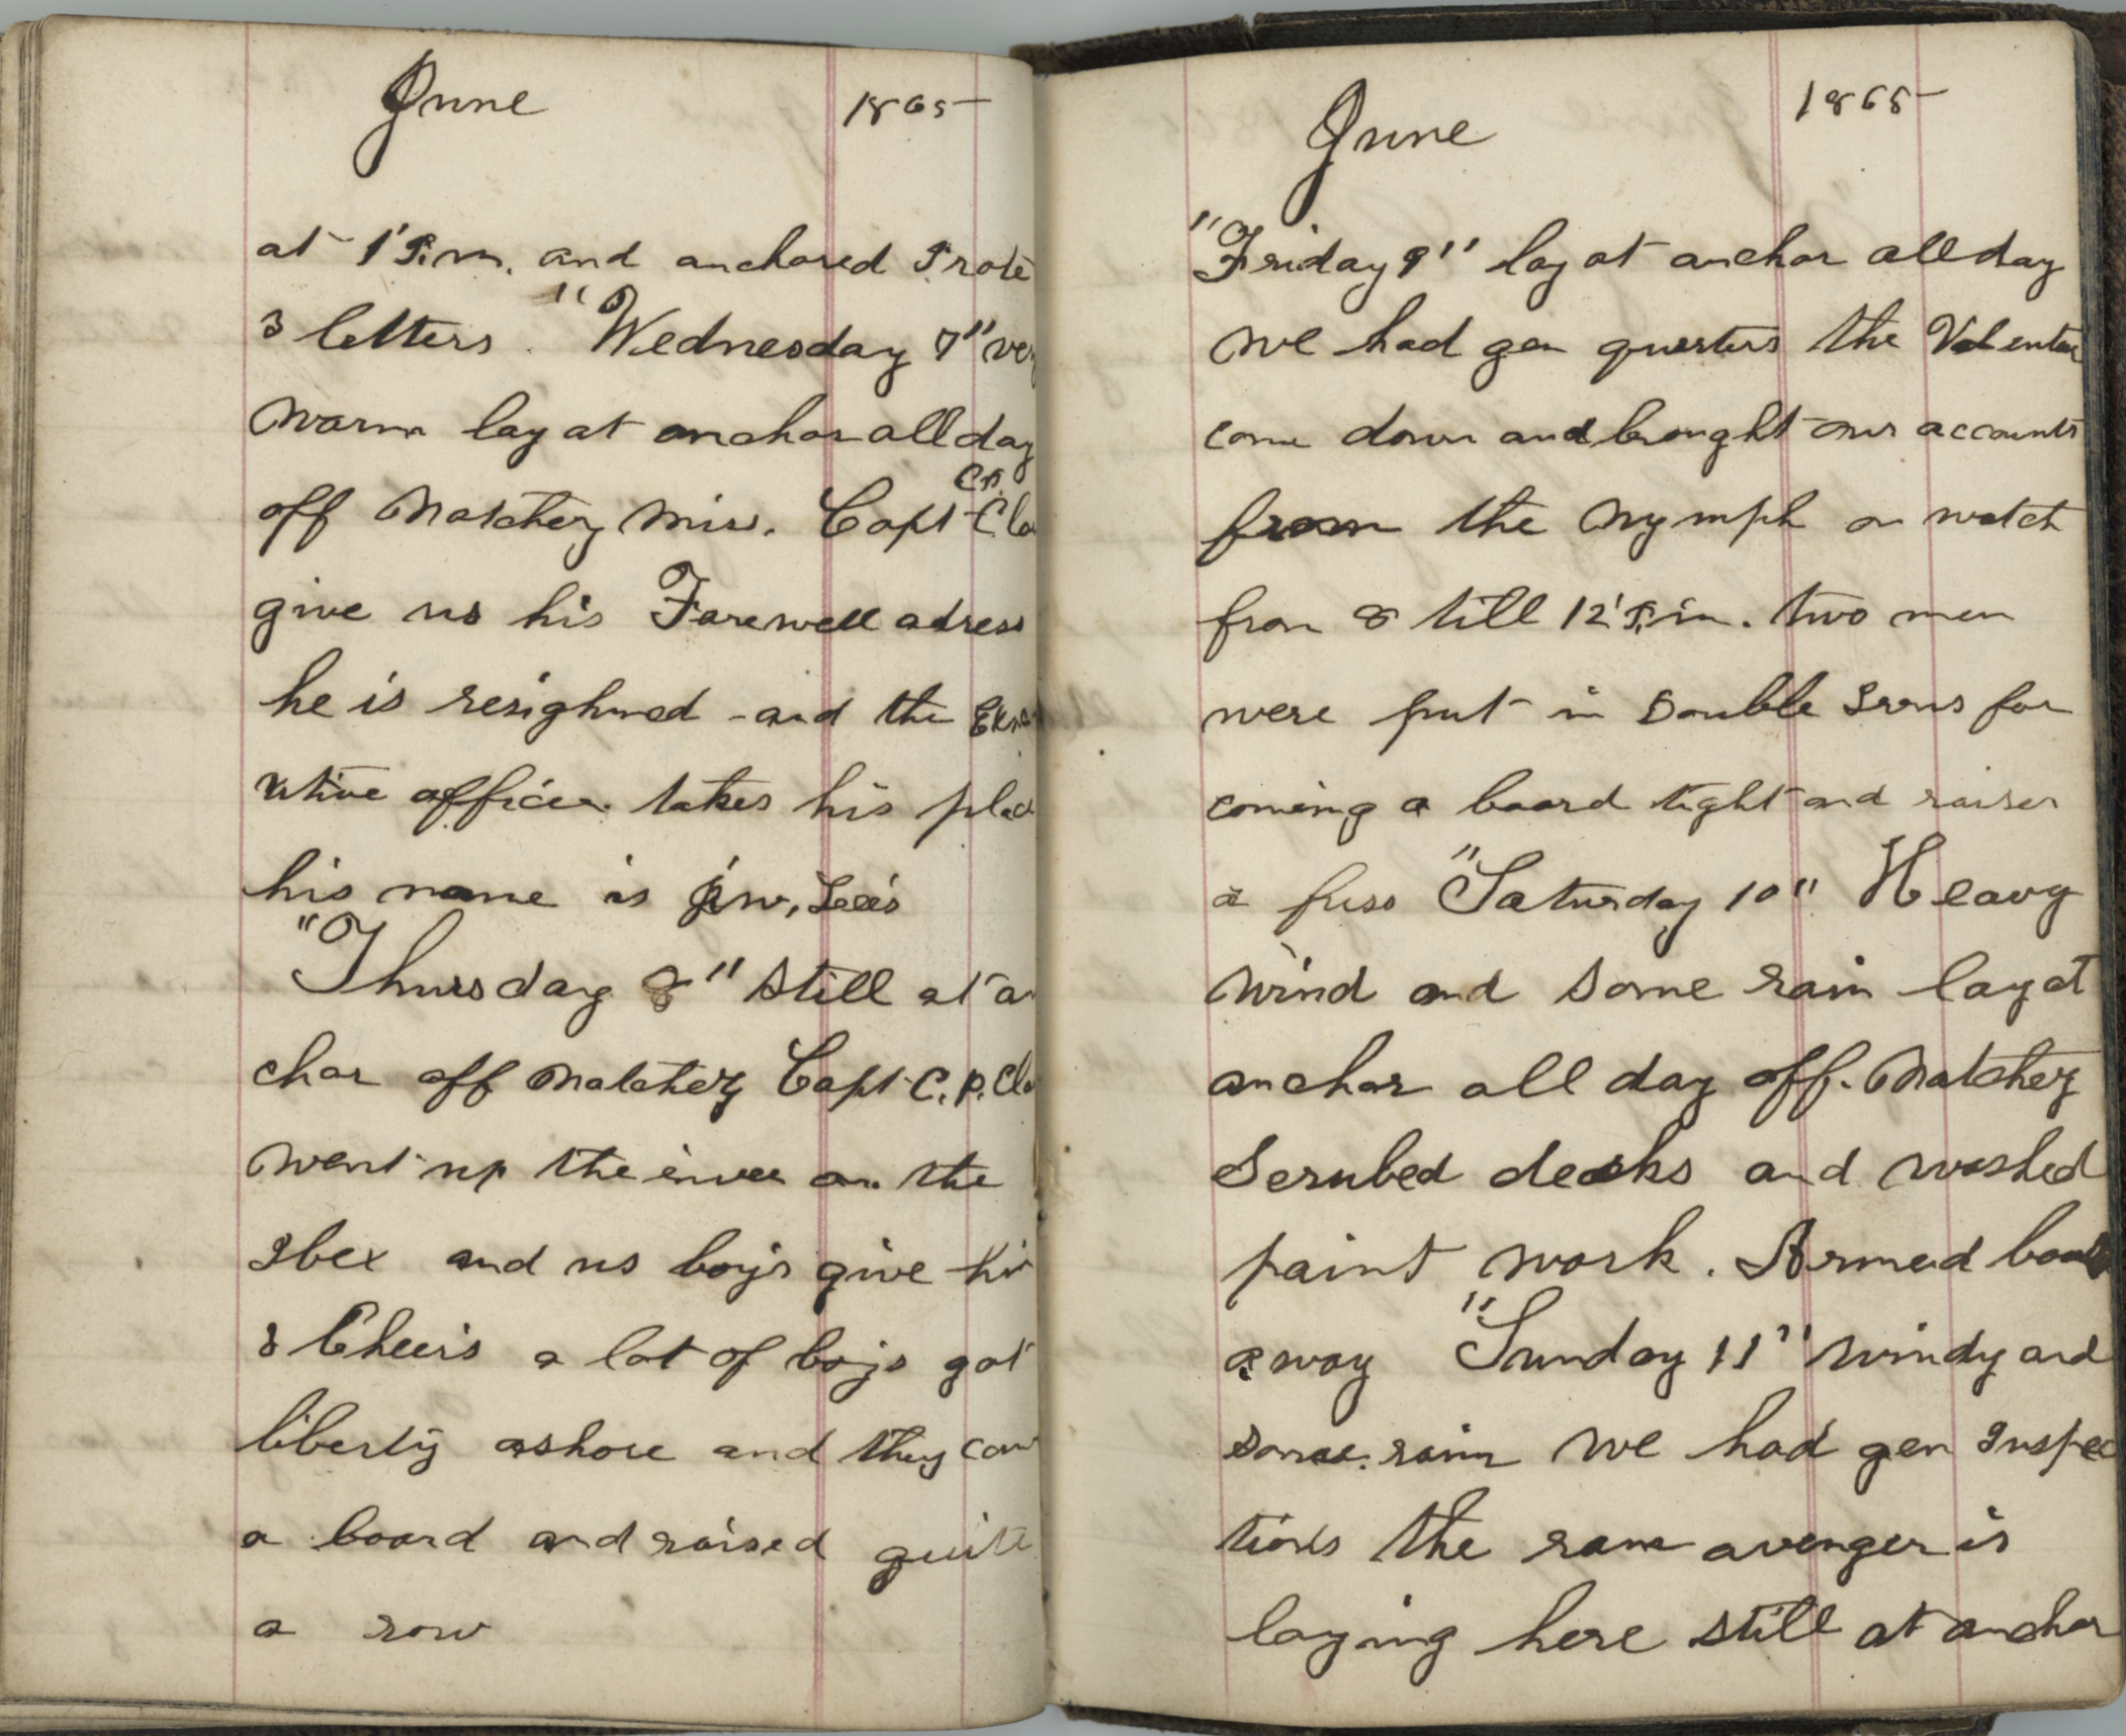 June 1865
at 1 P.m. and anchored I rote
3 letters. "Wednesday 7" very
warm lay at anchor all day
off Natchez Miss. Capt C.P. Cla
give us his Farewell adress
he is resighned and the Exe
utive officer takes his plac
his name is
"Thursday 8" still at an
chor off Natchez Capt C.P. Cla
went up the river on the
Ibex and us boys give him
3 Cheeis a lot of boys got
liberty ashore and they com
a board and raised quite
a row
June 1865
"Friday 9" lay at anchor all day
we had gen quarters the Volenteer
come down and brought our accounts
from the Nymph on watch
from 8 till 12 P.m. two men
were put in Double Irons for
coming a board tight and raisen
a fuss "Saturday 10" Heavy
wind and some rain lay at
anchor all day off Natchez
Scrubed decks and washed
paint work. Armed boats
away "Sunday 11" windy and
some rain we had gen Inspec
tions the ram avenger is
laying here still at anchor